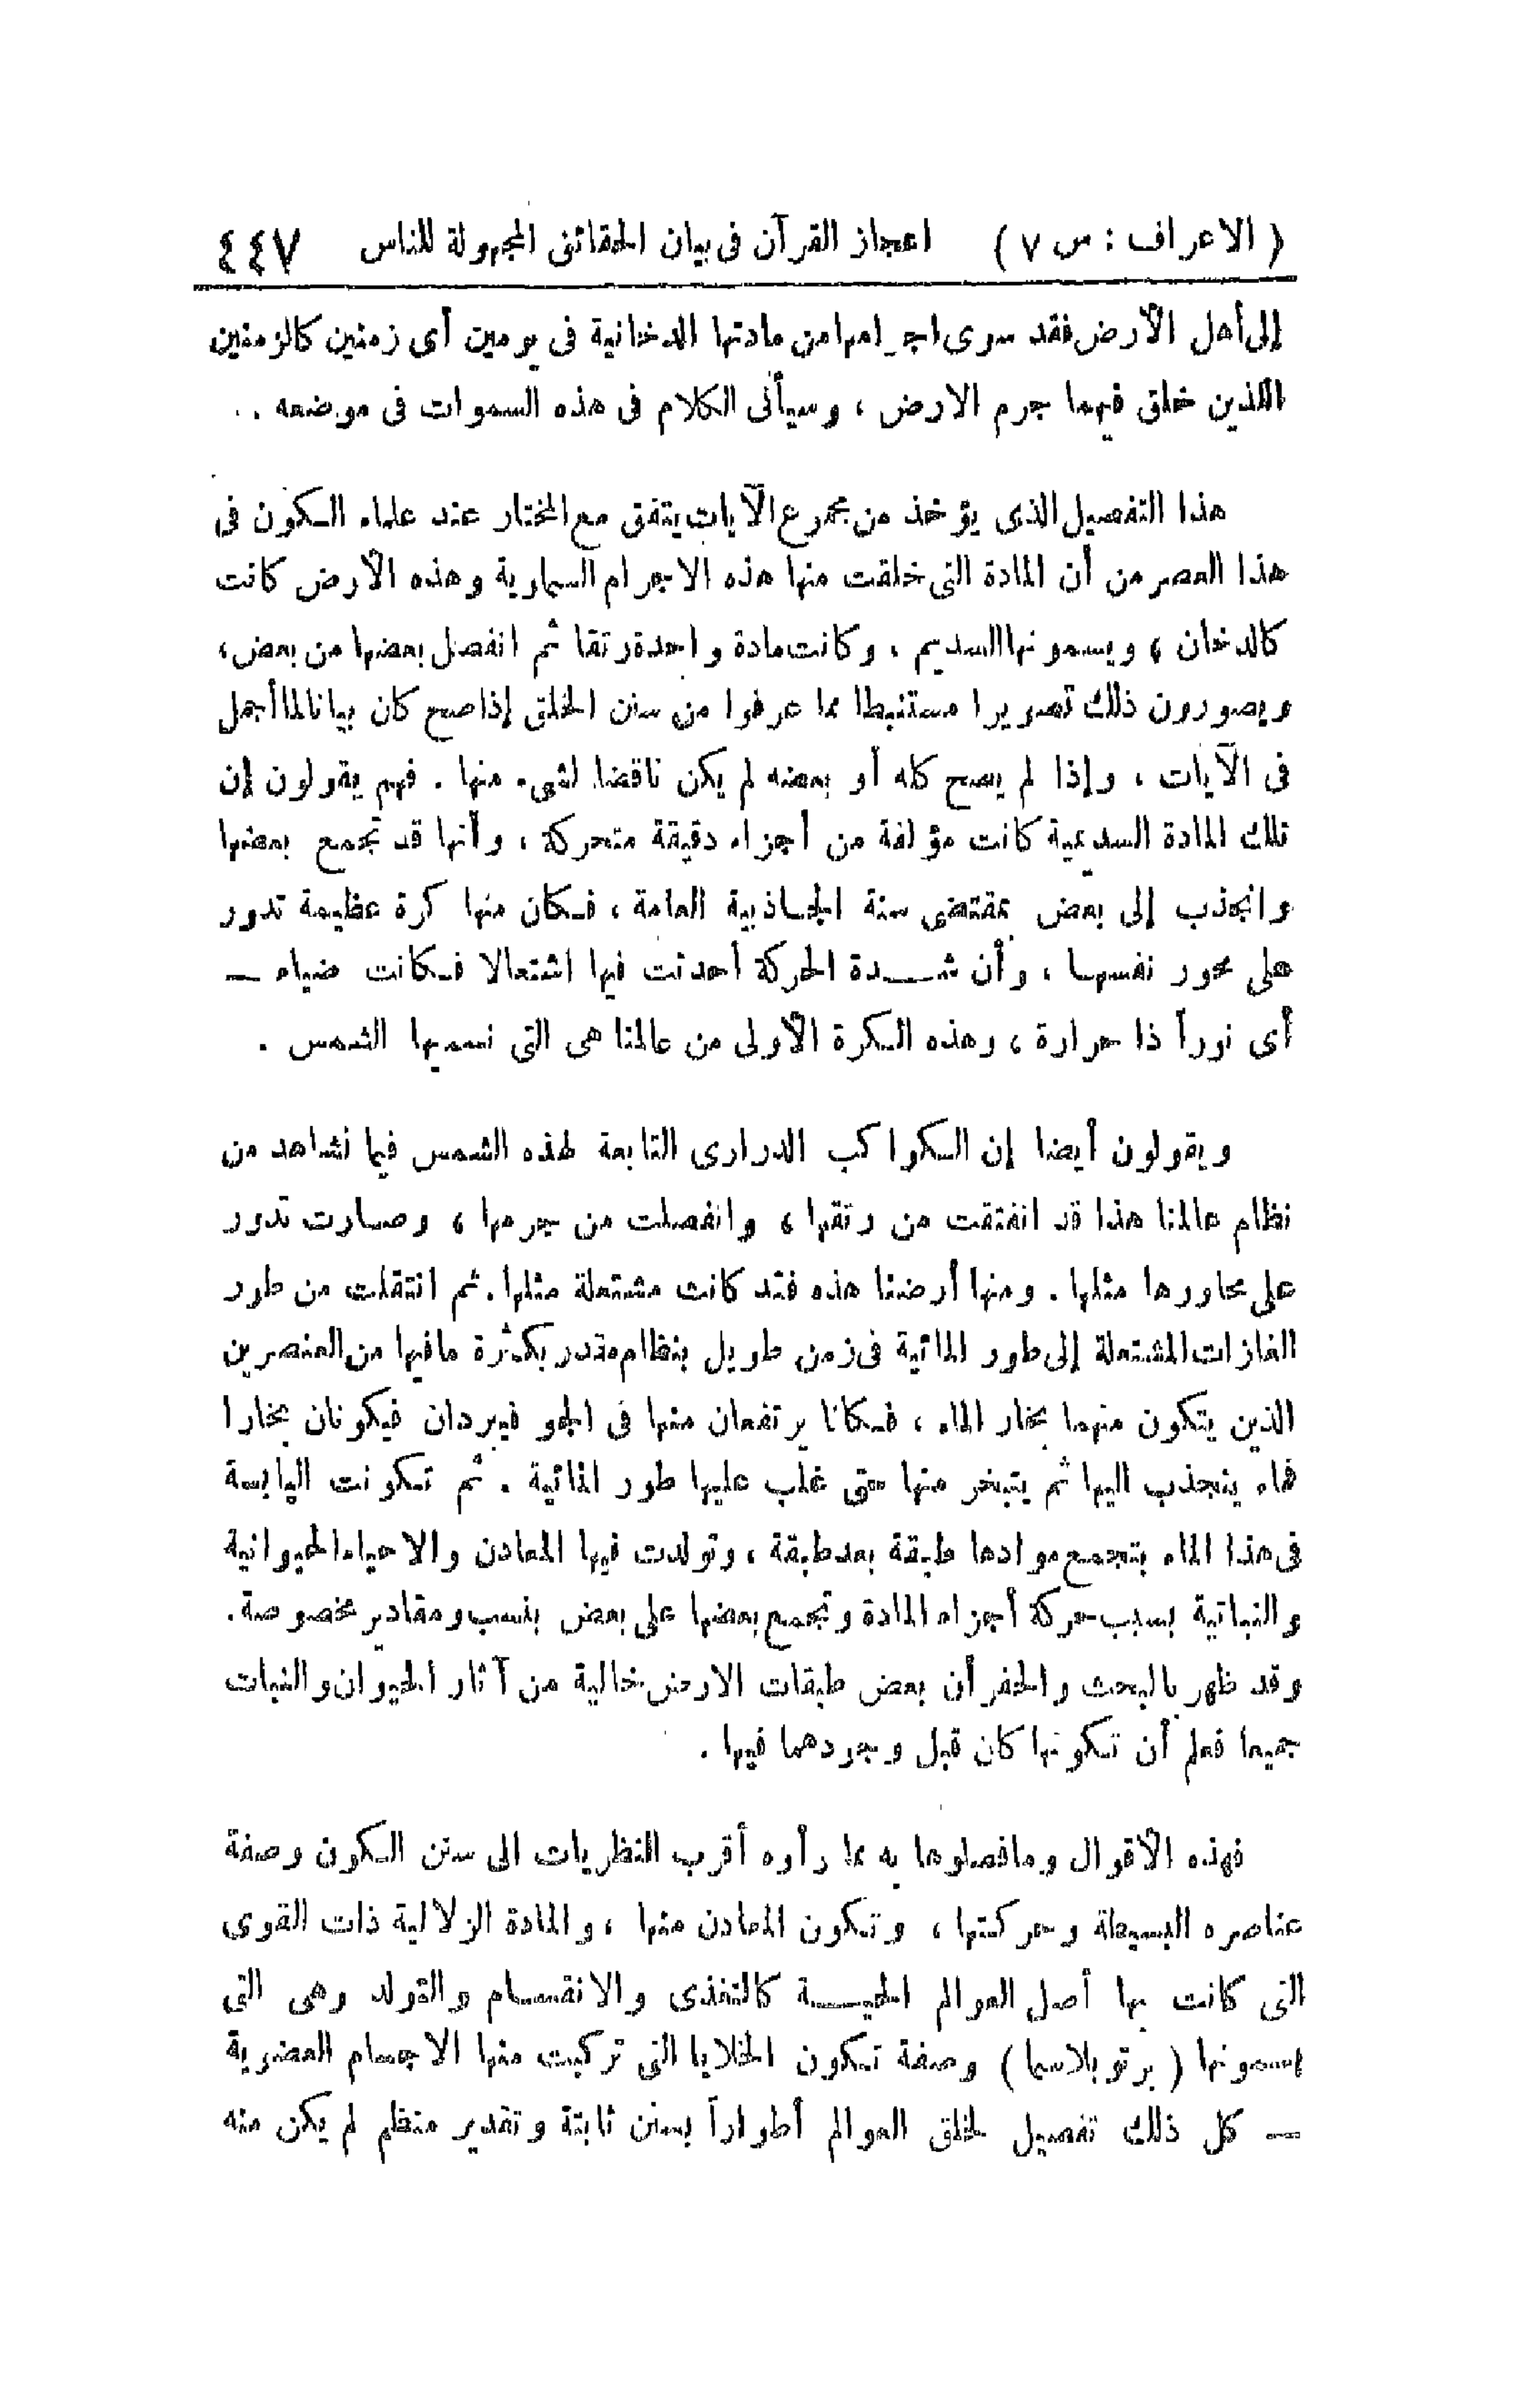 ( الاعراف : س ٧ ) اعجاز القرآن فى بيان الحقائق المجهولة للناس ٤٤٧
إلى أهل الأرض فقد سوى اجرامها من مادتها الدخانية فى يومين أى زمنين كالزمنين
اللذين خلق فيهما جرم الارض ، وسيأتى الكلام فى هذه السموات فى موضعه .
هذا التفصيل الذى يؤخذ من مجموع الآيات يتفق مع المختار عند علماء الكون فى
هذا العصر من أن المادة التى خلقت منها هذه الاجرام السماوية وهذه الأرض كانت
كالدخان ، ويسمونها السديم ، وكانت مادة واحدة رتقا ثم انفصل بعضها من بعض ،
ويصورون ذلك تصويرا مستنبطا مما عرفوا من سنن الخلق إذا صح كان بيانا لما أجمل
فى الآيات ، وإذا لم يصح كله أو بعضه لم يكن ناقضا لشىء منها . فهم يقولون إن
تلك المادة السديمية كانت مؤلفة من أجزاء دقيقة متحركة ، وأنها قد تجمع بعضها
وانجذب إلى بعض بمقتضى سنة الجاذبية العامة ، فكان منها كرة عظيمة تدور
على محور نفسها ، وأن شدة الحركة أحدثت فيها اشتعالا فكانت ضياء —
أى نوراً ذا حرارة ، وهذه الكرة الأولى من عالمنا هى التى نسميها الشمس .
ويقولون أيضا إن الكواكب الدرارى التابعة لهذه الشمس فيما نشاهد من
نظام عالمنا هذا قد انفتقت من رتقها ، وانفصلت من جرمها ، وصارت تدور
على محاورها مثلها . ومنها أرضنا هذه فقد كانت مشتعلة مثلها . ثم انتقلت من طور
الغازات المشتعلة إلى طور المائية فى زمن طويل بنظام مقدر بكثرة ما فيها من العنصرين
الذين يتكون منهما بخار الماء ، فكانا يرتفعان منها فى الجو فيبردان فيكونان بخارا
فماء ينجذب اليها ثم يتبخر منها حتى غلب عليها طور المائية . ثم تكونت اليابسة
فى هذا الماء بتجمع موادها طبقة بعد طبقة ، وتولدت فيها المعادن والاحياء الحيوانية
والنباتية بسبب حركة أجزاء المادة وتجمع بعضها على بعض بنسب ومقادير مخصوصة .
وقد ظهر بالبحث والحفر أن بعض طبقات الارض خالية من آثار الحيوان والنبات
جميعا فعلم أن تكونها كان قبل وجودهما فيها .
فهذه الأقوال وما فصلوها به مما رأوه أقرب النظريات الى سنن الكون وصفة
عناصره البسيطة وحركتها ، وتكون المعادن منها ، والمادة الزلالية ذات القوى
التى كانت بها أصل العوالم الحية كالتغذى والانقسام والتولد وهى التى
يسمونها ( برتوبلاسما ) وصفة تكون الخلايا التى تركبت منها الاجسام العضوية
— كل ذلك تفصيل لخلق العوالم أطواراً بسنن ثابتة وتقدير منظم لم يكن منه